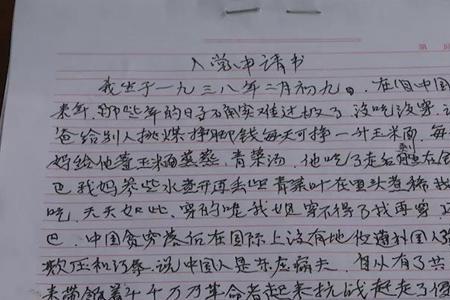 第 页
入党申请书
我生于一九三八年二月初九。在旧中国
来年,那些年的日子确实难过极了,没吃没穿,
爸给别人挑煤挣脚钱每天可挣一升玉米面,每
妈给他蒸玉米面蒸蒸,青菜汤,他吃了走
巴我妈 些水煮开再丢些青菜叶在里头煮稀
吃,天天如此,穿的呢我姐穿不得了我再穿,
巴,中国贫穷落后在国际上没有地位遭外国人
欺压和 ,说中国人是东亚病夫,自从有了共
来带领着千千万万革命者起来抗战赶走了